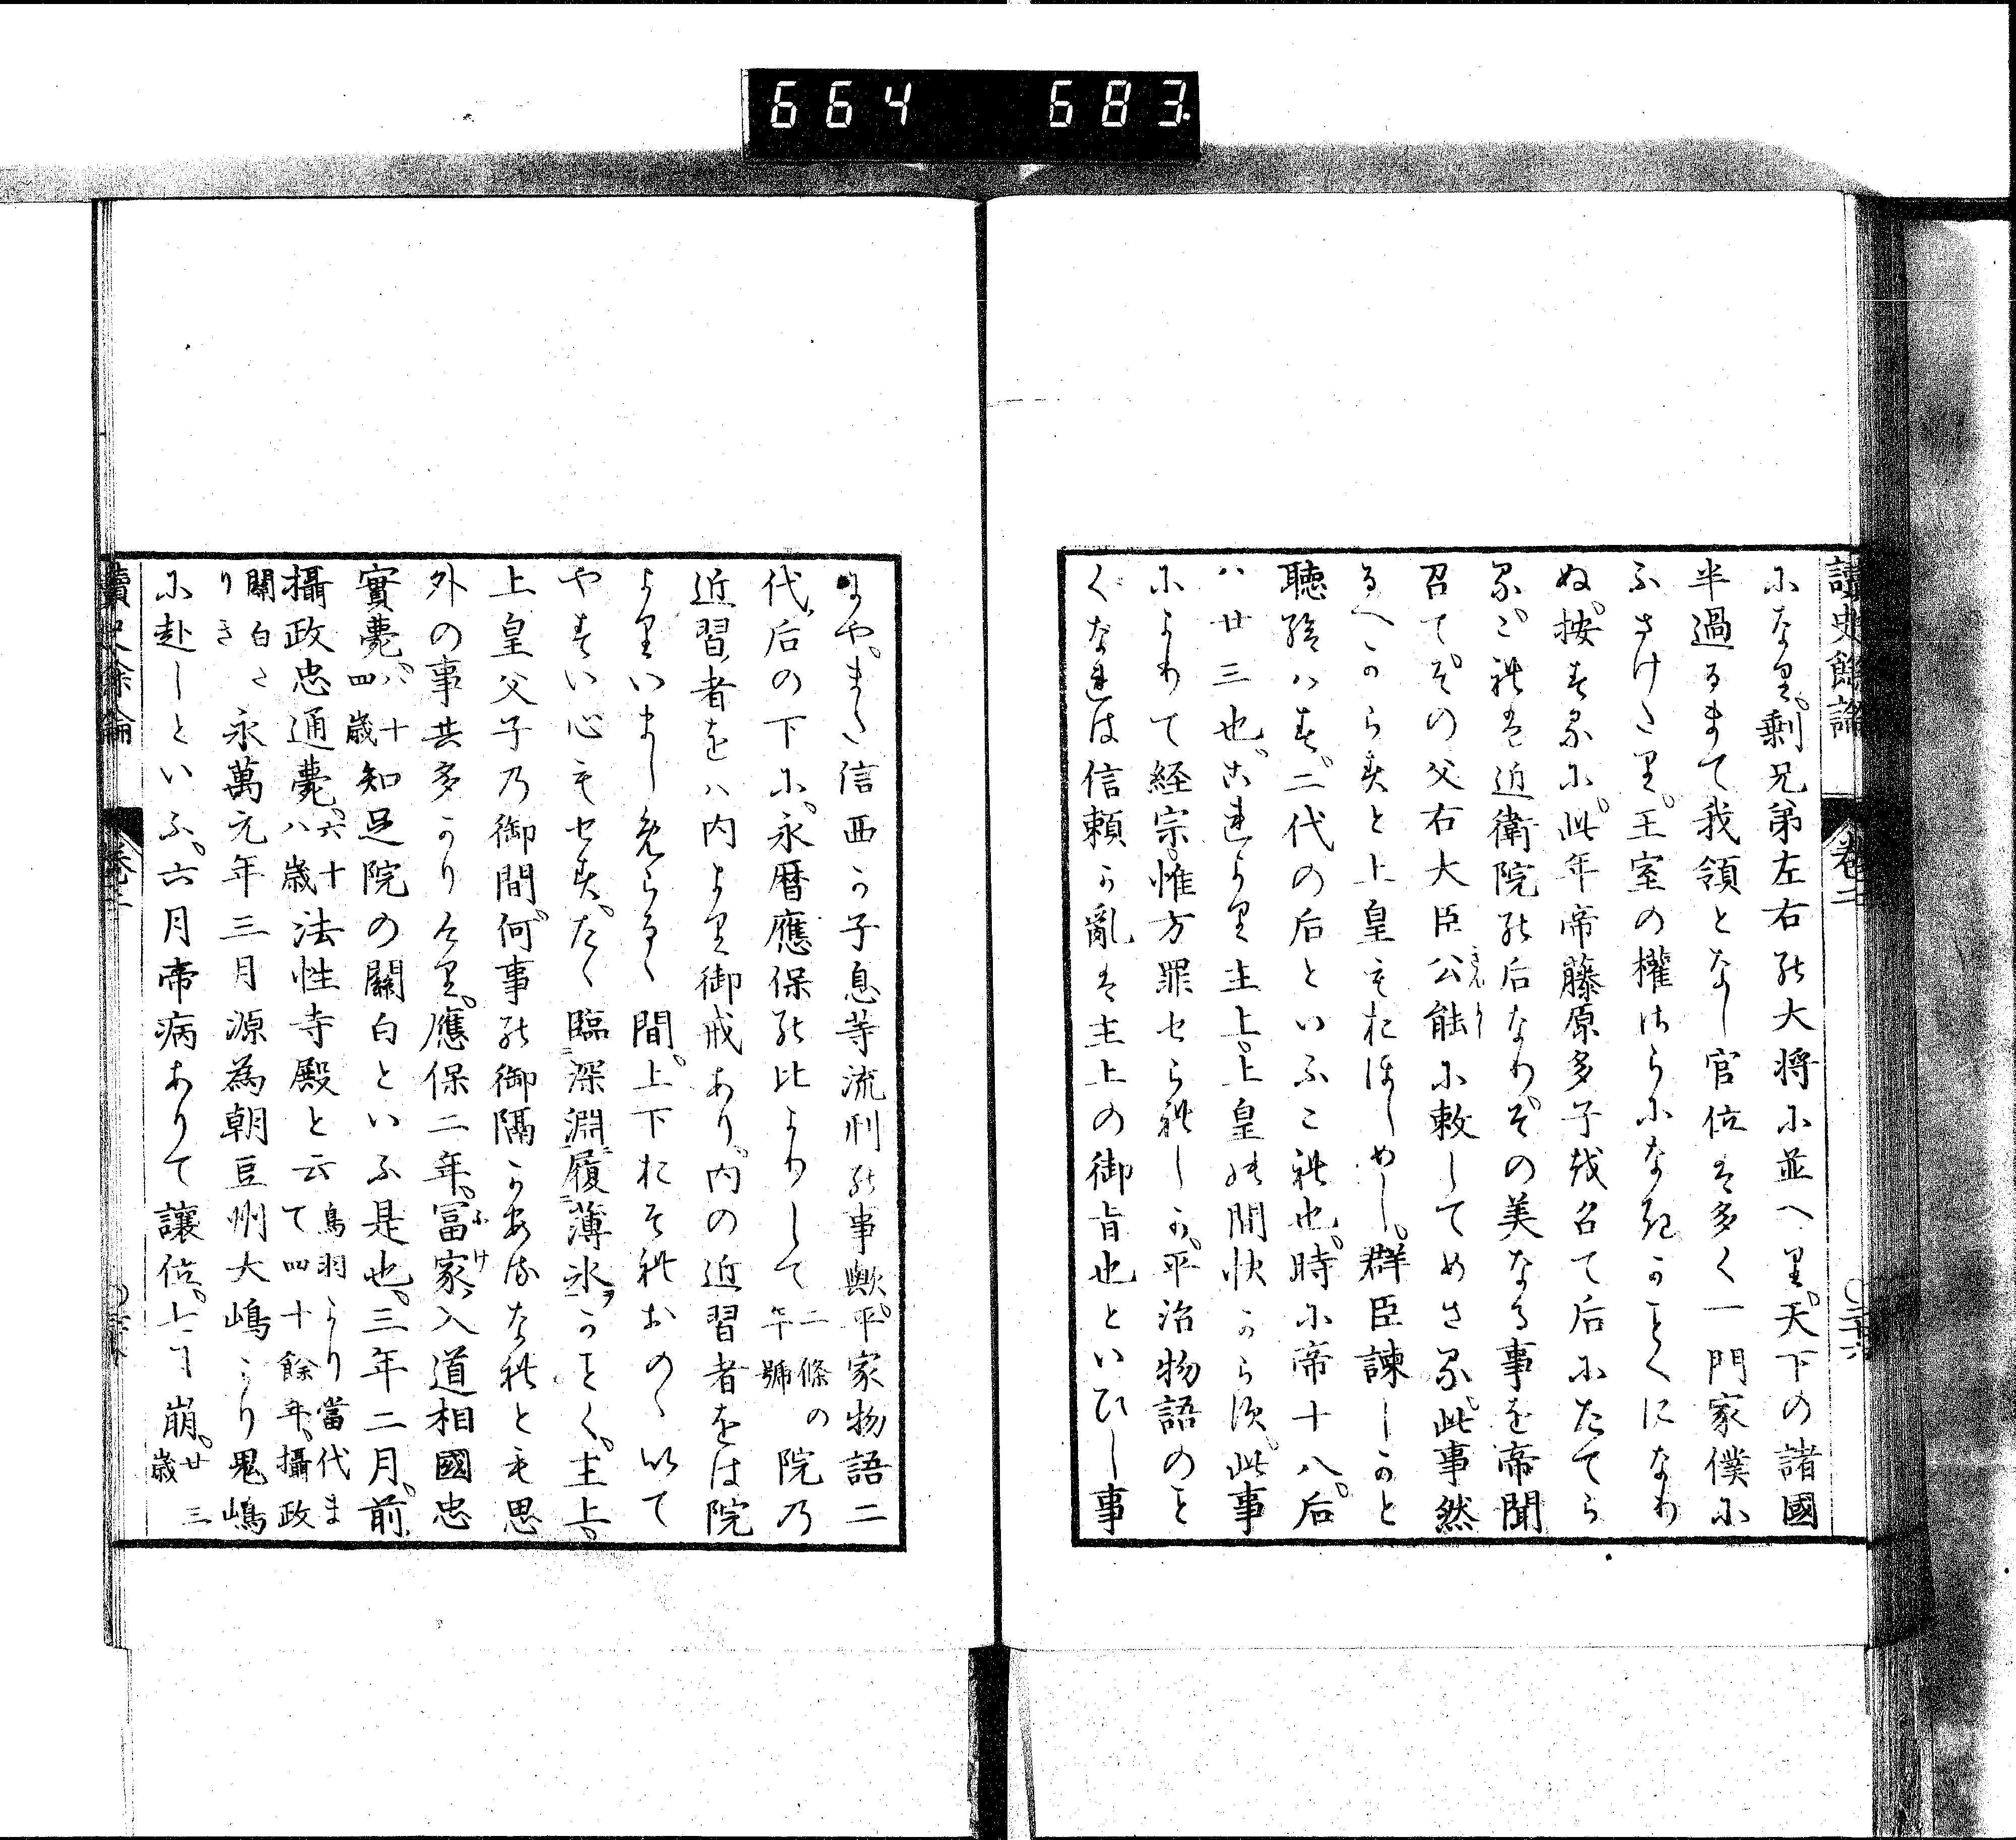 664 683
讀史餘論 卷二 ○二十六
になり。剩兄弟左右の大将に並へり。天下の諸國
半過るまて我領となし官位は多く一門家僕に
ふさけたり。王室の權はらになきかことくになり
ぬ。按するに。此年帝藤原多子を召て后にたてら
る。これは近衛院の后なりその美なる事を帝聞
召てその父右大臣公能に敕してめさる。此事然
るへからすと上皇もおほしめし。群臣諫しかと
聴給はす。二代の后といふこれ也。時に帝十八。后
ハ廿三也。これより主上。上皇の間快からす。此事
によりて経宗。惟方罪せられしか。平治物語のこと
くなれは信頼か亂は主上の御旨也といひし事
にや。また信西か子息等流刑の事歟。平家物語二
代后の下に。永暦應保の比よりして二條の年號院の
近習者をハ内より御戒あり。内の近習者をは院
よりいましめらるゝ間。上下おそれおのゝいて
やすい心もせす。たゝ臨深淵履薄氷かことく。主上。
上皇父子の御間。何事の御隔かあるなれとも思
外の事共多かりけり。應保二年。冨家入道相國忠
實薨。八十四歳知足院の關白といふ是也。三年二月。前
攝政忠通薨。六十八歳法性寺殿と云鳥羽より當代まて四十餘年。攝政
關白たりき永萬元年三月源為朝豆州大嶋より鬼嶋
に赴しといふ。六月帝病ありて讓位。七月崩。廿三歳
讀史餘論 卷二